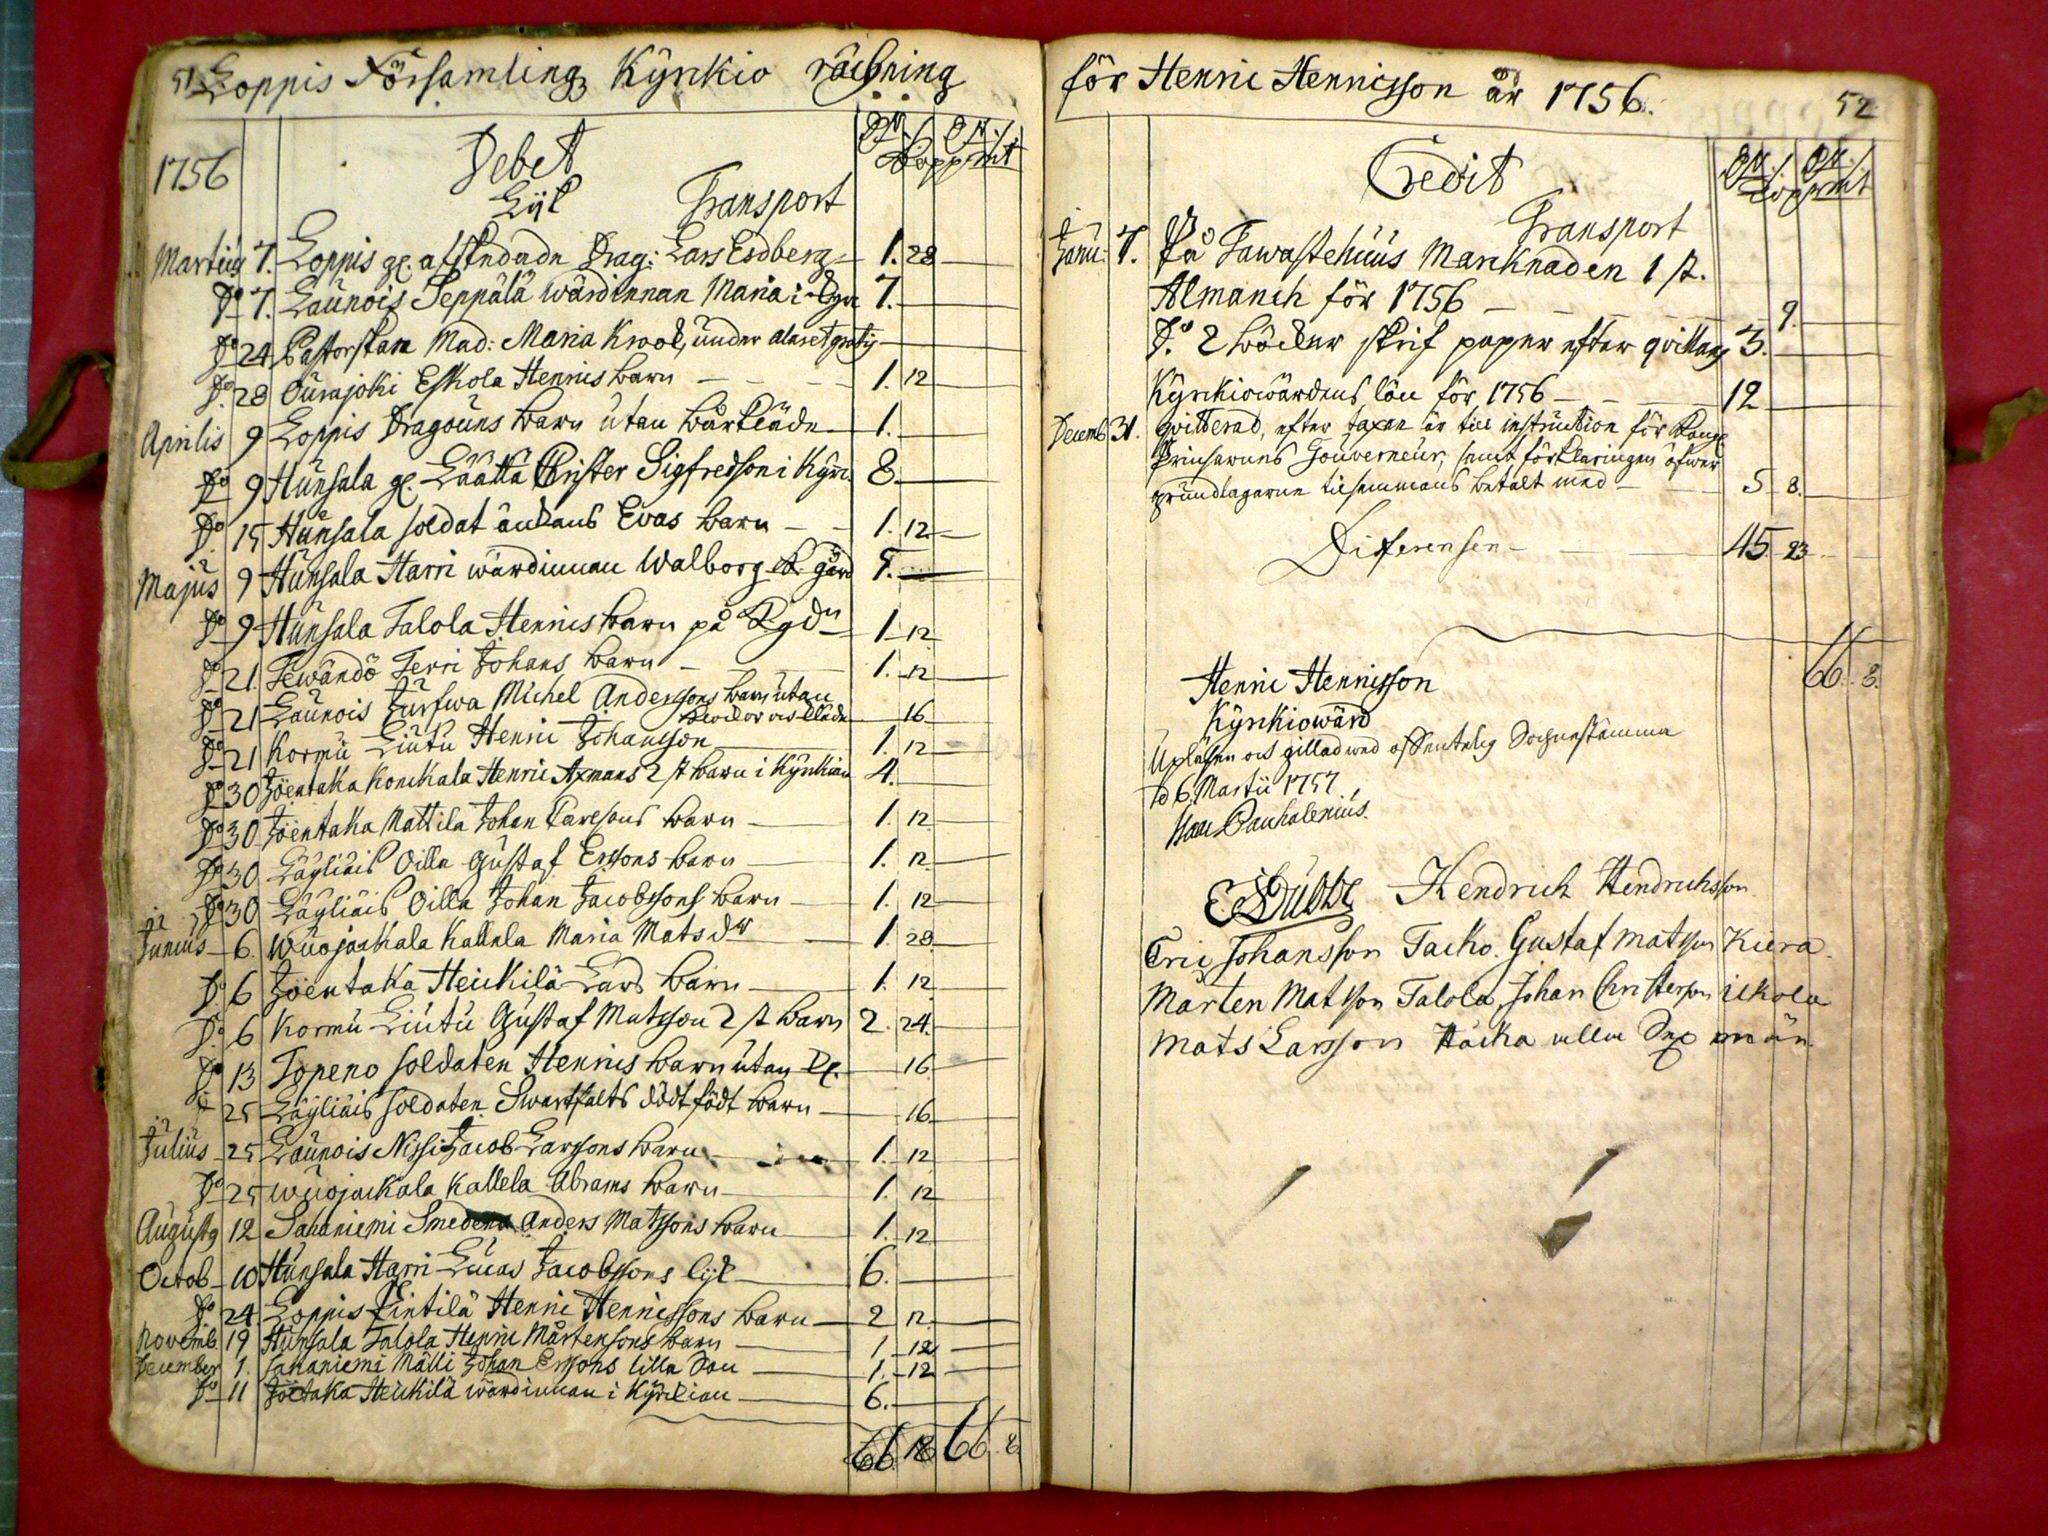 51. Loppis Församling Kyrkio räkning
Dr. Dr.
Koppmt
1756
Debet
Lijk Transport
Martius 7. Loppis gl. afskedade Drag: Lars Esdberg 1. 28
Do 7. Launois Seppälä wärdinnan Maria i 7.
Do 24 Pastorskan Mad: Maria Krook, under altaret gratis
Do 28 Ourajoki Eskola Henrics barn 1. 12
Aprilis 9 Loppis Dragouns barn utan bårkläde 1.
Do 9 Hunsala gl. Läätta Christer Sigfredson i Kyrk. 8.
Do 15 Hunsala soldat änkans Evas barn 1. 12
Majus 9 Hunsala Harri wärdinnan Walborg K. gård
Do 9 Hunsala Talola Henrics barn på Kgdn 1 12
Do 21. Tewändö Terri Johans barn 1. 12
Do 21 Launois Jurfwa Michel Anderssons barn utan
klockor och kläde 16
Do 21 Kormu Liutu Henric Johansson 1. 12
Do 30 Jöentaka Konckala Henric Axmans 2 st barn i Kyrkian 4.
Do 30 Jöentaka Mattila Johan Carlsons barn 1. 12
Do 30 Läyliäis Oilla Gustaf Erssons barn 1. 12
Do 30 Läyliäis Oilla Johan Jacobssons barn 1. 12
Junius 6. Wuojackala Kallela Maria Mats dr 1. 28
Do 6 Jöentaka Heickilä Lars barn 1. 12
Do 6 Kormu Liutu Gustaf Matsson 2 st barn 2. 24.
Do 13 Topeno soldaten Henrics barn utan kl. 16
25 Läyliäis soldaten Swartfalts dödt födt barn 16
Julius 25 Launois Nissi Jacob Larssons barn 1. 12
Do 25 Wuojackala Kallela Abrams barn 1. 12
Augustg 12 Sahaniemi Smedens Anders Matssons barn 1. 12
Octob 10 Hunsala Harri Lucas Jacobssons lijk 6.
Do 24 Loppis Pintilä Henric Henricssons barn 2 12
Novemb. 19 Hunsala Talola Henric Mårtensons barn 1 12
December 1. Sahaniemi Mälli Johan Erssons lilla son 1. 12
Do 11 Jöetaka Heickilä wärdinnan i Kyrkian 6.
66 18 66. 8.
för Henric Henricsson år 1756. 52
Dr. Dr.
Koppmt
Credit
Transport
Janu: 7. På Tawastehuus Marcknaden 1 st.
Almanch för 1756 9.
Do 2 böcker skrif papper efter qvittans 3.
Kyrkiowärdens lön för 1756 12
Decemb 31. qvitterad, efter taxan är till instruction för Kongl
Prinsarnes Gouverneur, samt förklaringen öfwer
grundlagarne tillsammans betalt med 5 8.
Differensen 45 23
66. 8.
Henric Henricsson
Kyrkiowärd
Upläsen och gillad wed offentelig Sochnestämma
d 6. Martii 1757.
Pauhalenius.
Hendrich Hendrichsson
Eric Johansson Tacko. Gustaf Matsson Kiera.
Mårten Matsson Talola, Johan Christerson Uckola
Mats Larsson Häcka alla Sex män